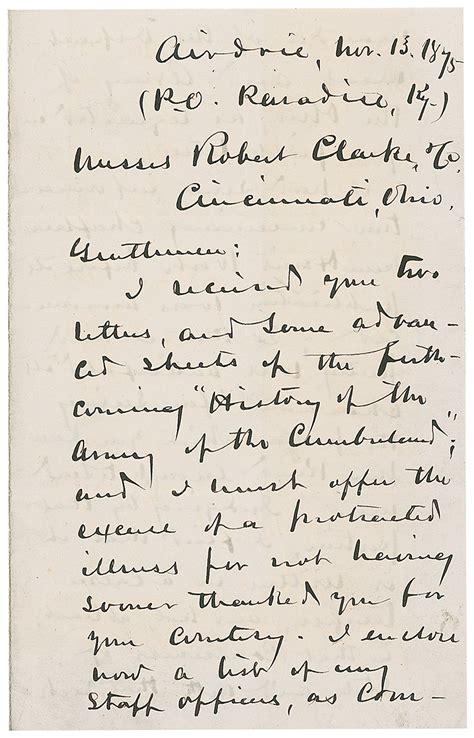 Airdrie, Nov. 13. 1875
(P.O. Paradise, Ky.)
Messrs Robert Clarke, & Co.
Cincinnati, Ohio.
Gentlemen:
I received your two
letters, and some advan-
ced sheets of the forth-
coming "History of the
Army of the Cumberland";
and I must offer the
excuse of a protracted
illness for not having
sooner thanked you for
your courtesy. I enclose
now a list of my
Staff officers, as com-